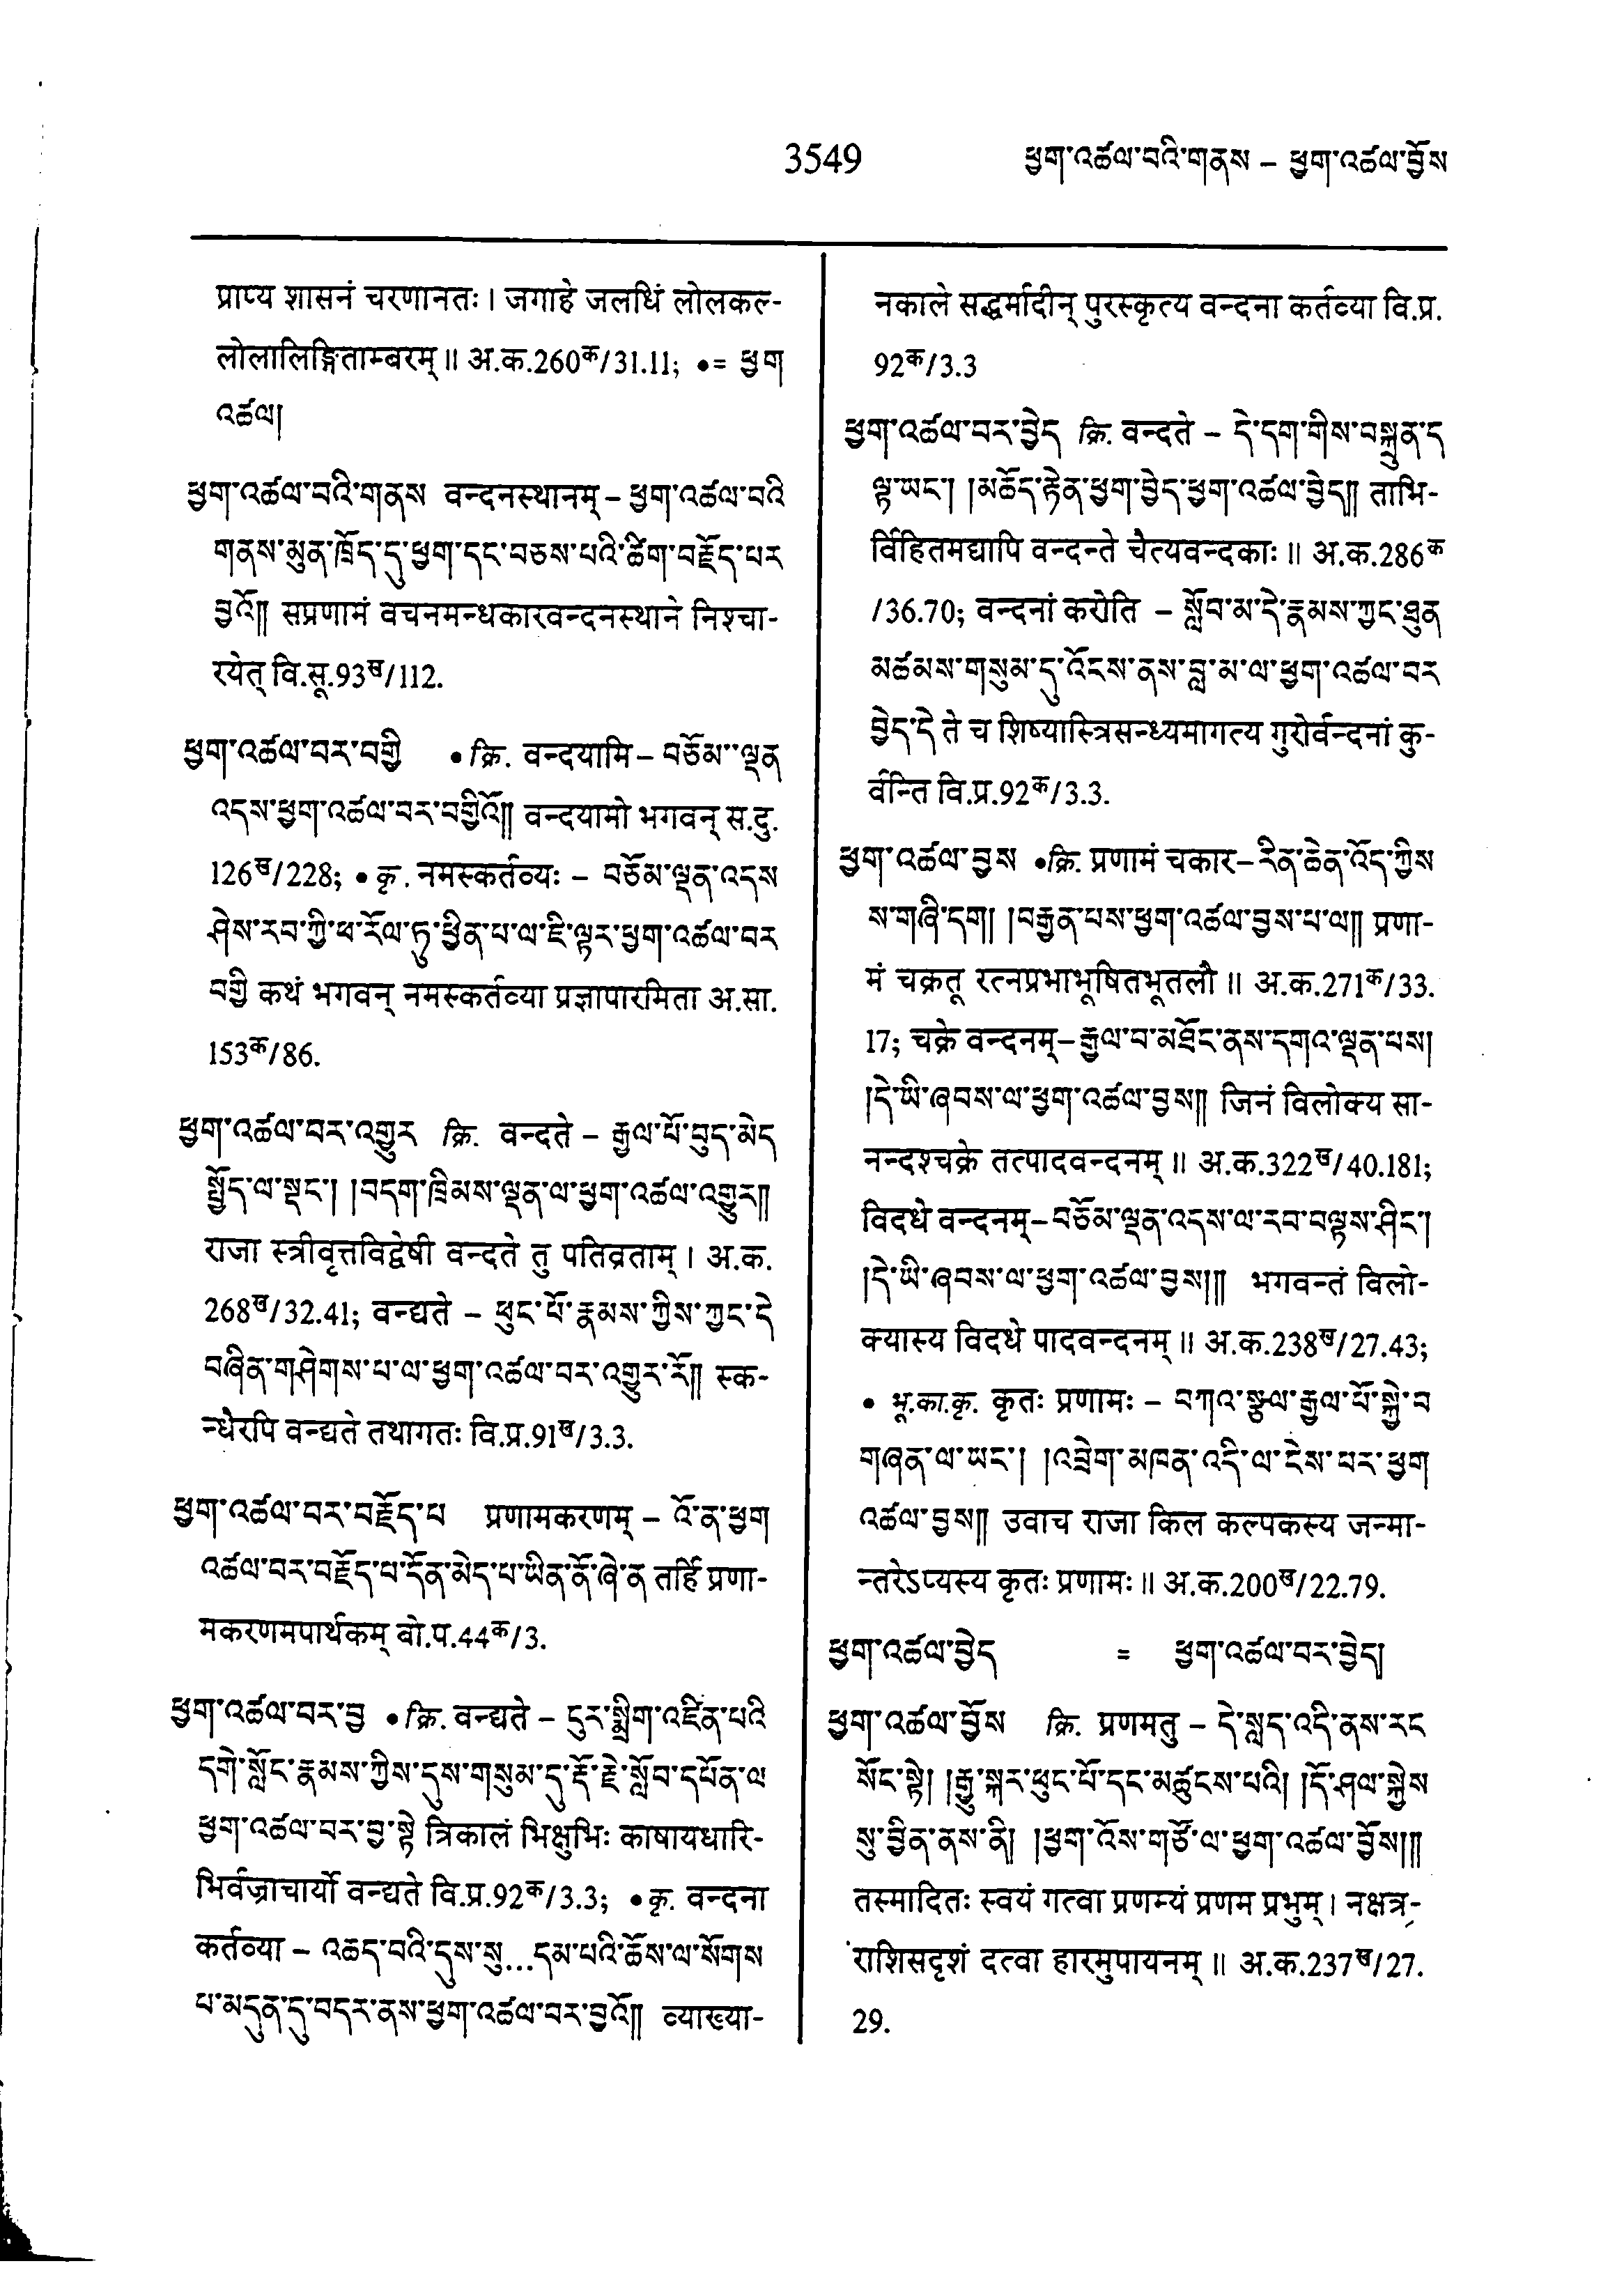 3549
ཕྱག་འཚལ་བའི་གནས – ཕྱག་འཚལ་བྱོས
प्राप्य शासनं चरणानतः। जगाहे जलधिं लोलकल्-
लोलालिङ्गिताम्बरम्॥ अ.क.260क/31.11; •= ཕྱག
འཚལ།
ཕྱག་འཚལ་བའི་གནས वन्दनस्थानम् – ཕྱག་འཚལ་བའི
གནས་མུན་ཁྲོད་དུ་ཕྱག་དང་བཅས་པའི་ཚིག་བརྗོད་པར
བྱའོ༎ सप्रणामं वचनमन्धकारवन्दनस्थाने निश्चा-
रयेत् वि.सू.93ख/112.
ཕྱག་འཚལ་བར་བགྱི •क्रि. वन्दयामि – བཅོམ་་ལྡན
འདས་ཕྱག་འཚལ་བར་བགྱིའོ༎ वन्दयामो भगवन् स.दु.
126ख/228; •कृ. नमस्कर्तव्यः – བཅོམ་ལྡན་འདས
ཤེས་རབ་ཀྱི་ཕ་རོལ་ཏུ་ཕྱིན་པ་ལ་ཇི་ལྟར་ཕྱག་འཚལ་བར
བགྱི कथं भगवन् नमस्कर्तव्या प्रज्ञापारमिता अ.सा.
153क/86.
ཕྱག་འཚལ་བར་འགྱུར क्रि. वन्दते – རྒྱལ་པོ་བུད་མེད
སྤྱོད་ལ་སྡང་། །བདག་ཁྲིམས་ལྡན་ལ་ཕྱག་འཚལ་འགྱུར༎
राजा स्त्रीवृत्तविद्वेषी वन्दते तु पतिव्रताम्। अ.क.
268ख/32.41; वन्द्यते – ཕུང་པོ་རྣམས་ཀྱིས་ཀྱང་དེ
བཞིན་གཤེགས་པ་ལ་ཕྱག་འཚལ་བར་འགྱུར་རོ༎ स्क-
न्धैरपि वन्द्यते तथागतः वि.प्र.91ख/3.3.
ཕྱག་འཚལ་བར་བརྗོད་པ प्रणामकरणम् – འོ་ན་ཕྱག
འཚལ་བར་བརྗོད་པ་དོན་མེད་པ་ཡིན་ནོ་ཞེ་ན तर्हि प्रणा-
मकरणमपार्थकम् बो.प.44क/3.
ཕྱག་འཚལ་བར་བྱ •क्रि. वन्द्यते – དུར་སྨྲིག་འཛིན་པའི
དགེ་སློང་རྣམས་ཀྱིས་དུས་གསུམ་དུ་རྡོ་རྗེ་སློབ་དཔོན་ལ
ཕྱག་འཚལ་བར་བྱ་སྟེ त्रिकालं भिक्षुभिः काषायधारि-
भिर्वज्राचार्यो वन्द्यते वि.प्र.92क/3.3; •कृ. वन्दना
कर्तव्या – འཆད་བའི་དུས་སུ...དམ་པའི་ཆོས་ལ་སོགས
པ་མདུན་དུ་བདར་ནས་ཕྱག་འཚལ་བར་བྱའོ༎ व्याख्या-
नकाले सद्धर्मादीन् पुरस्कृत्य वन्दना कर्तव्या वि.प्र.
92क/3.3
ཕྱག་འཚལ་བར་བྱེད क्रि. वन्दते – དེ་དག་གིས་བསྐྲུན་ད
ལྟ་ཡང་། །མཆོད་རྟེན་ཕྱག་བྱེད་ཕྱག་འཚལ་བྱེད༎ ताभि-
र्विहितमद्यापि वन्दन्ते चैत्यवन्दकाः॥ अ.क.286क
/36.70; वन्दनां करोति – སློབ་མ་དེ་རྣམས་ཀྱང་ཐུན
མཚམས་གསུམ་དུ་འོངས་ནས་བླ་མ་ལ་ཕྱག་འཚལ་བར
བྱེད་དེ ते च शिष्यास्त्रिसन्ध्यमागत्य गुरोर्वन्दनां कु-
र्वन्ति वि.प्र.92क/3.3.
ཕྱག་འཚལ་བྱས •क्रि. प्रणामं चकार– རིན་ཆེན་འོད་ཀྱིས
ས་གཞི་དག། །བརྒྱན་པས་ཕྱག་འཚལ་བྱས་པ་ལ༎ प्रणा-
मं चक्रतू रत्नप्रभाभूषितभूतलौ॥ अ.क.271क/33.
17; चक्रे वन्दनम्– རྒྱལ་བ་མཐོང་ནས་དགའ་ལྡན་པས།
།དེ་ཡི་ཞབས་ལ་ཕྱག་འཚལ་བྱས༎ जिनं विलोक्य सा-
नन्दश्चक्रे तत्पादवन्दनम्॥ अ.क.322ख/40.181;
विदधे वन्दनम्– བཅོམ་ལྡན་འདས་ལ་རབ་བལྟས་ཤིང་།
།དེ་ཡི་ཞབས་ལ་ཕྱག་འཚལ་བྱས།༎ भगवन्तं विलो-
क्यास्य विदधे पादवन्दनम्॥ अ.क.238ख/27.43;
• भू.का.कृ. कृतः प्रणामः – བཀའ་སྩལ་རྒྱལ་པོ་སྐྱེ་བ
གཞན་ལ་ཡང་། །འབྲེག་མཁན་འདི་ལ་ངེས་པར་ཕྱག
འཚལ་བྱས༎ उवाच राजा किल कल्पकस्य जन्मा-
न्तरेऽप्यस्य कृतः प्रणामः॥ अ.क.200ख/22.79.
ཕྱག་འཚལ་བྱེད = ཕྱག་འཚལ་བར་བྱེད།
ཕྱག་འཚལ་བྱོས क्रि. प्रणमतु – དེ་སླད་འདི་ནས་རང
སོང་སྟེ། །རྒྱུ་སྐར་ཕུང་པོ་དང་མཚུངས་པའི། །དོ་ཤལ་སྐྱེས
སུ་བྱིན་ནས་ནི། །ཕྱག་འོས་གཙོ་ལ་ཕྱག་འཚལ་བྱོས།༎
तस्मादितः स्वयं गत्वा प्रणम्यं प्रणम प्रभुम्। नक्षत्र-
राशिसदृशं दत्वा हारमुपायनम्॥ अ.क.237ख/27.
29.